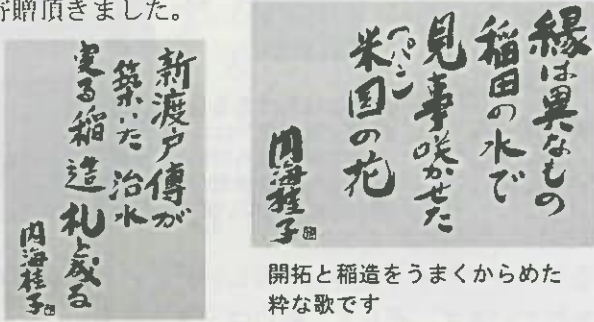 寄贈頂きました。
新渡戸傳が
築いた治水
実る稲造札と成る
内海桂子
縁は異なもの
稲田の水で
見事咲かせた
(ペン)
米国の花
内海桂子
開拓と稲造をうまくからめた
粋な歌です